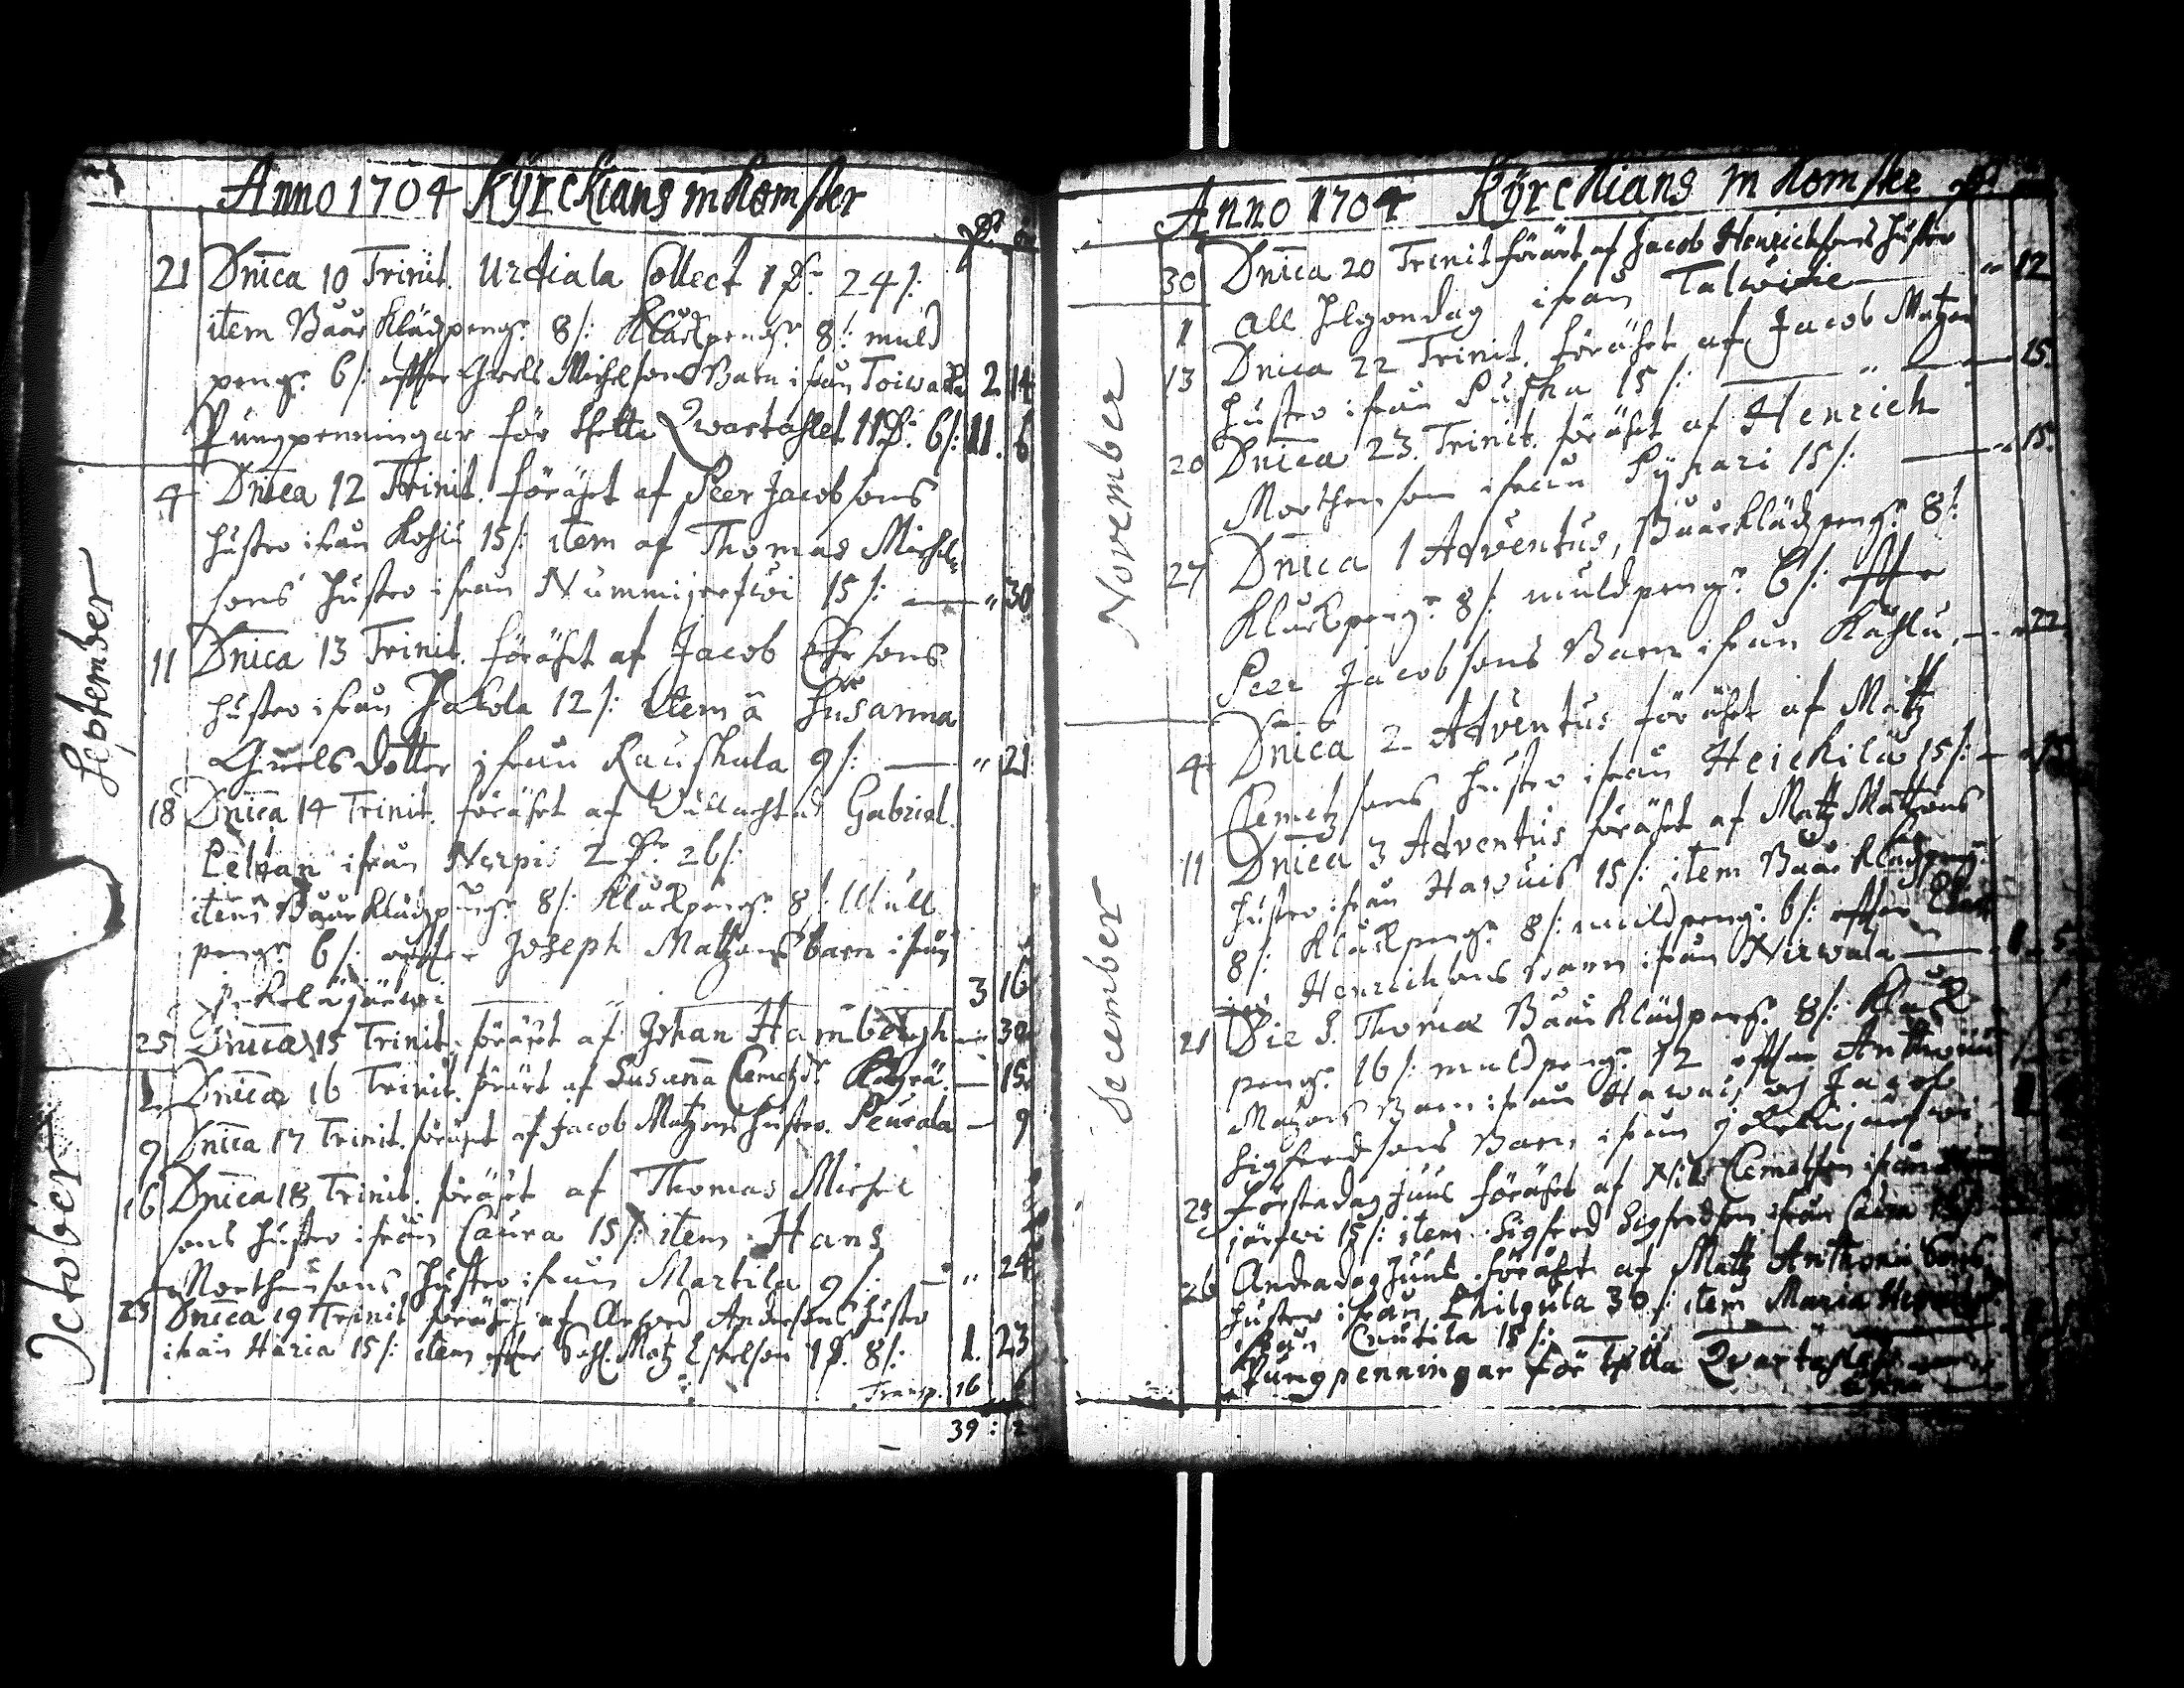 Anno 1704 Kyrckians Inkomster
21 Dnica 10 Trinit. Urdiala Collect 1 Dr 24/:
item Baarklädzpengr 8/: Kläckpengr 8/: muld
pengr 6/: effter Grels Michelsons Barn ifrån Toiwalla 2 14
Pungpenningar för thetta Qwartahlet 11 Dr 6/: 11. 6
September
4 Dnica 12 Trinit. föräht af Peer Jacobsons
hustro ifrån Kohlu 15/: item af Thomas Michel=
sons hustro ifrån Nummijerfwi 15/: — " 30
11 Dnica 13 Trinit. föräht af Jacob Ehrsons
hustro ifrån Jakola 12/: item á Susanna
Grels dotter ifrån Rauskala 9/: — " 21
18 Dnica 14 Trinit. föräht af Gabriel
ifrån Nerpis 2 Dr 26/:
item Baarklädzpengr 8/: Klackpengr 8/: Mull
pengr 6/: effter Joseph Matzons barn ifrån
jekeläjärwi 3 16
25 Dnica 15 Trinit. föräht af Johan Hambergh — 30
October
2 Dnica 16 Trinit. förärt af Susanna Clemetzdr — 15
9 Dnica 17 Trinit. föräht af Jacob Matzons hustro Peurala — 9
16 Dnica 18 Trinit. föräht af Thomas Michel
sons hustro ifrån Caura 15/: item Hans
Morthensons hustro ifrån Martila 9/: — " 24
23 Dnica 19 Trinit föräht af Andersons hustro
ifrån Haria 15/: item effter Sahl. Matz Eskelson 1 D. 8/: 1. 23
Transp. 16
39:
Anno 1704 Kyrckians Inkomster
30 Dnica 20 Trinit förärt af Jacob Henrichsons hustro
ifrån Talwitie — " 12
November
1 All Helgondag
13 Dnica 22 Trinit. föräht af Jacob Matzon
hustro ifrån Puska 15/: — " — 15.
20 Dnica 23. Trinit. föräht af Henrich
Morthenson ifrån 15/: — " 15.
27 Dnica 1 Adventus, Baarklädzpengr 8/:
Klackpengr 8/: muldpengr 6/: effter
Peer Jacobsons Barn ifrån Kåhlu — " 22
December
4 Dnica 2 Adventus föräht af Mattz
Clemetzsons hustro ifrån Heickilä 15/: — " 15
11 Dnica 3 Adventus föräht af Matz Matzons
hustro ifrån Hawuis 15/: item Baarklädzpengr
8/: Klackpengr 8/: muldpengr 6/: effter
Henrichsons barn ifrån Nirwala — 1 5
21 Die S. Thomæ Baarklädzpengr 8/: Klack
pengr 16/: muldpengr 12 effter Anthoni
Matzons Barn ifrån Hawuis och Jacob
Sigfredsons Barn ifrån jekeläjärfwi
25 Förstadag Juul föräht af Nils Clemetson ifrån
järfwi 15/: item Sigfred Sigfredson ifrån Caura
26 Andradag Juul föräht af Mattz Anthoni Sons
hustro ifrån 30/: item Maria
ifrån Cnutila 15/: —
Pungpenningar för thetta Qwartahlet